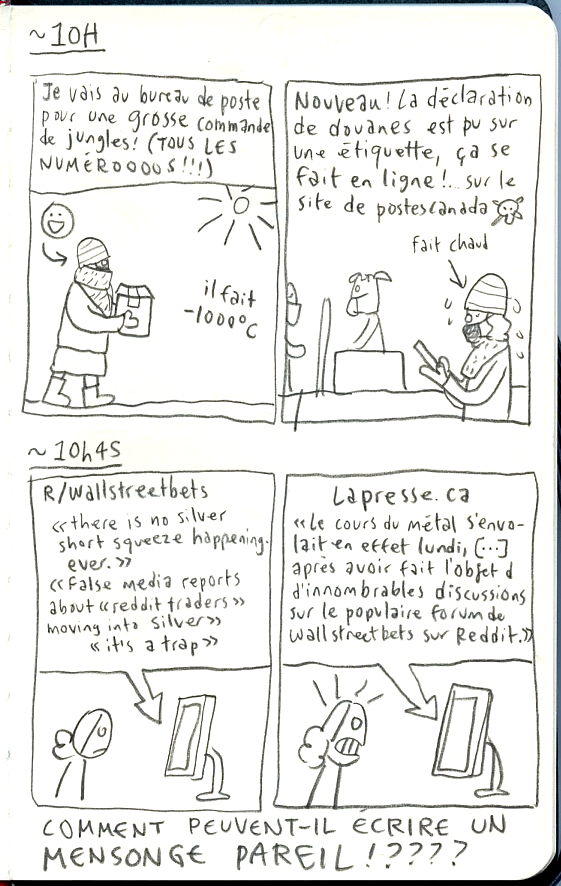 ~10H
Je vais au bureau de poste
pour une grosse commande
de jungles! (TOUS LES
NUMÉROOOOS!!!)
il fait
-1000°C
Nouveau! La déclaration
de douanes est pu sur
une étiquette, ça se
fait en ligne!... sur le
site de postescanada
fait chaud
~10h45
R/wallstreetbets
«there is no silver
short squeeze happening.
ever.»
«False media reports
about «reddit traders»
moving into silver»
«it's a trap»
Lapresse.ca
«Le cours du métal s'envo-
lait en effet lundi, [...]
après avoir fait l'objet d
d'innombrables discussions
sur le populaire forum de
wallstreetbets sur Reddit.»
COMMENT PEUVENT-IL ÉCRIRE UN
MENSONGE PAREIL!????